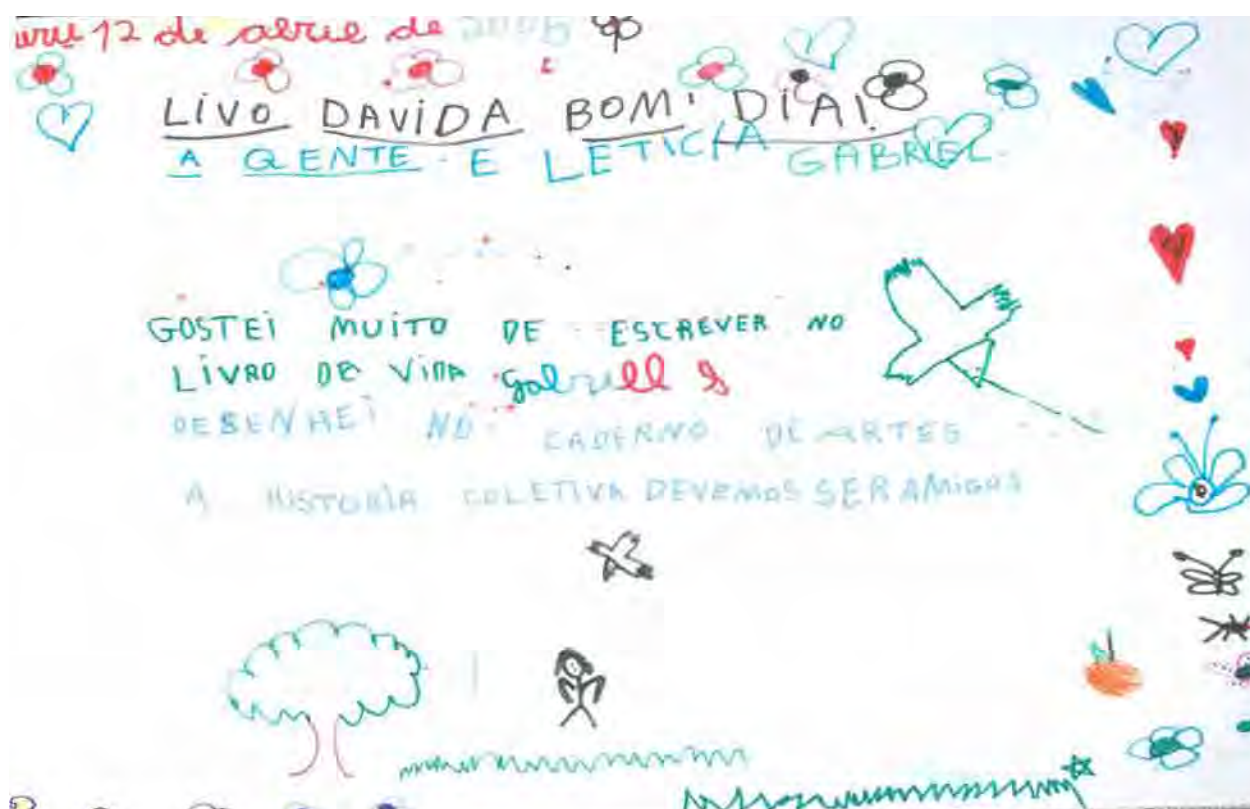 uru 12 de abril de 2006
LIVO DAVIDA BOM DIA!
A GENTE E LETICIA GABRIEL.
GOSTEI MUITO DE ESCREVER NO
LIVRO DA VIDA Gabriell G
DESENHEI NO CADERNO DE ARTES
A HISTORIA COLETIVA DEVEMOS SER AMIGOS